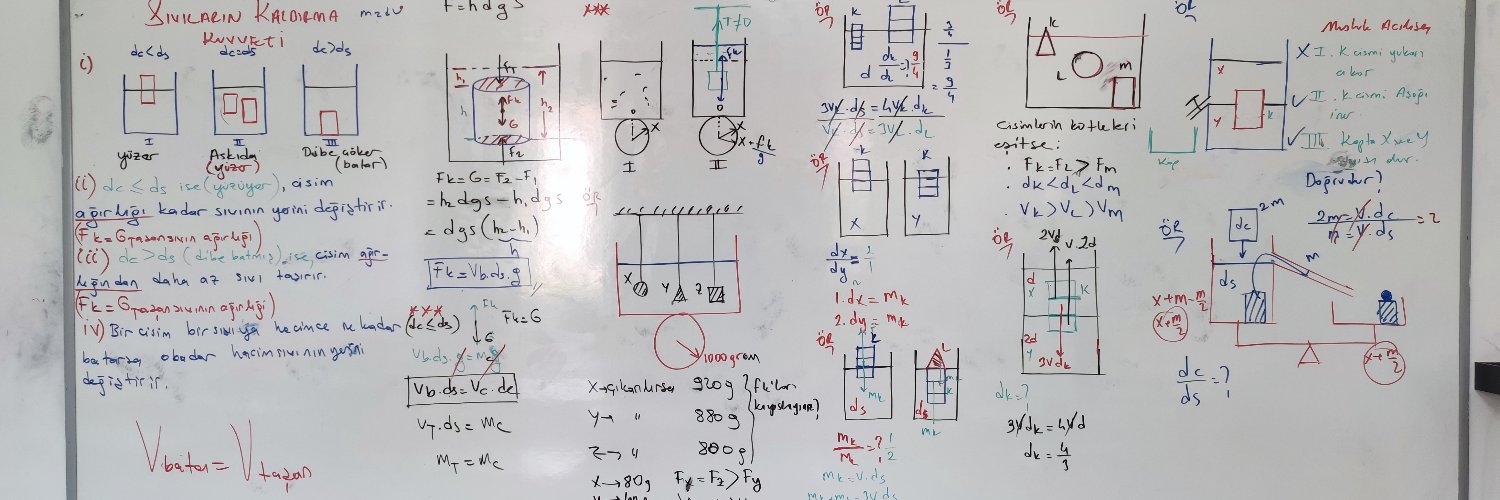 SIVILARIN KALDIRMA
KUVVETİ
i)
dc<ds
dc=ds
dc>ds
I
II
III
yüzer
Askıda
(yüzer)
Dibe çöker
(batar)
(ii) dc ≤ ds ise (yüzüyor), cisim
ağırlığı kadar sıvının yerini değiştirir.
(Fk = Gtaşan sıvının ağırlığı)
(iii) dc > ds (dibe batmış) ise, cisim ağır-
lığından daha az sıvı taşırır.
(Fk = Gtaşan sıvının ağırlığı)
iv) Bir cisim bir sıvıya hacimce ne kadar
batarsa o kadar hacim sıvının yerini
değiştirir.
Vbatan = Vtaşan
F = h d g s
h1
F1
h
Fk
G
h2
F2
Fk = G = F2 - F1
= h2 dgs - h1 dgs
= dgs (h2 - h1)
h
Fk = Vb.ds.g
***
(dc ≤ ds)
Fk
G
Fk = G
Vb.ds.g = mc g
Vb.ds = Vc.dc
VT.ds = mc
mT = mc
***
X
I
T≠0
Fk
X + Fk/g
II
ÖR
X
Y
Z
1000 gram
X → çıkarılırsa 920 g
Y → " 880 g
Z → " 800 g
X → 80 g
Fy = Fz > Fy
ÖR
K
L
d
dk/dL = ? 9/4
3/4
1/3
= 9/4
3Vk.ds = 4Vk.dk
VL.ds = 3VL.dL
ÖR
K
K
X
Y
dx/dy = 2/1
1.dx = mk
2.dy = mk
ÖR
L
K
ds
mk
L
K
ds
mk
= ? 1/2
mk = V.ds
ÖR
K
L
m
Cisimlerin kütleleri
eşitse:
. Fk = FL > Fm
. dk < dL < dm
. Vk > VL > Vm
ÖR
2Vd
V.2d
d
X
K
2d
Y
3Vdk
dk = ?
3Vdk = 4Vd
dk = 4/3
ÖR
X
Y
K
Kap
Musluk Açılırsa
X I. K cismi yukarı
çıkar
✓ II. K cismi Aşağı
iner
✓ III. Kapta X ve Y
sıvısı dur.
Doğrudur?
ÖR
dc
2m
ds
m
2m = V.dc
m = V.ds
= 2
X + m - m/2
X + m/2
X + m/2
dc/ds = ?